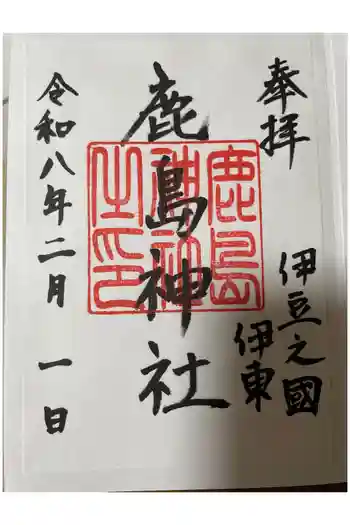 奉拝
伊豆之國
伊東
鹿島神社
鹿島神社之印
令和八年二月一日